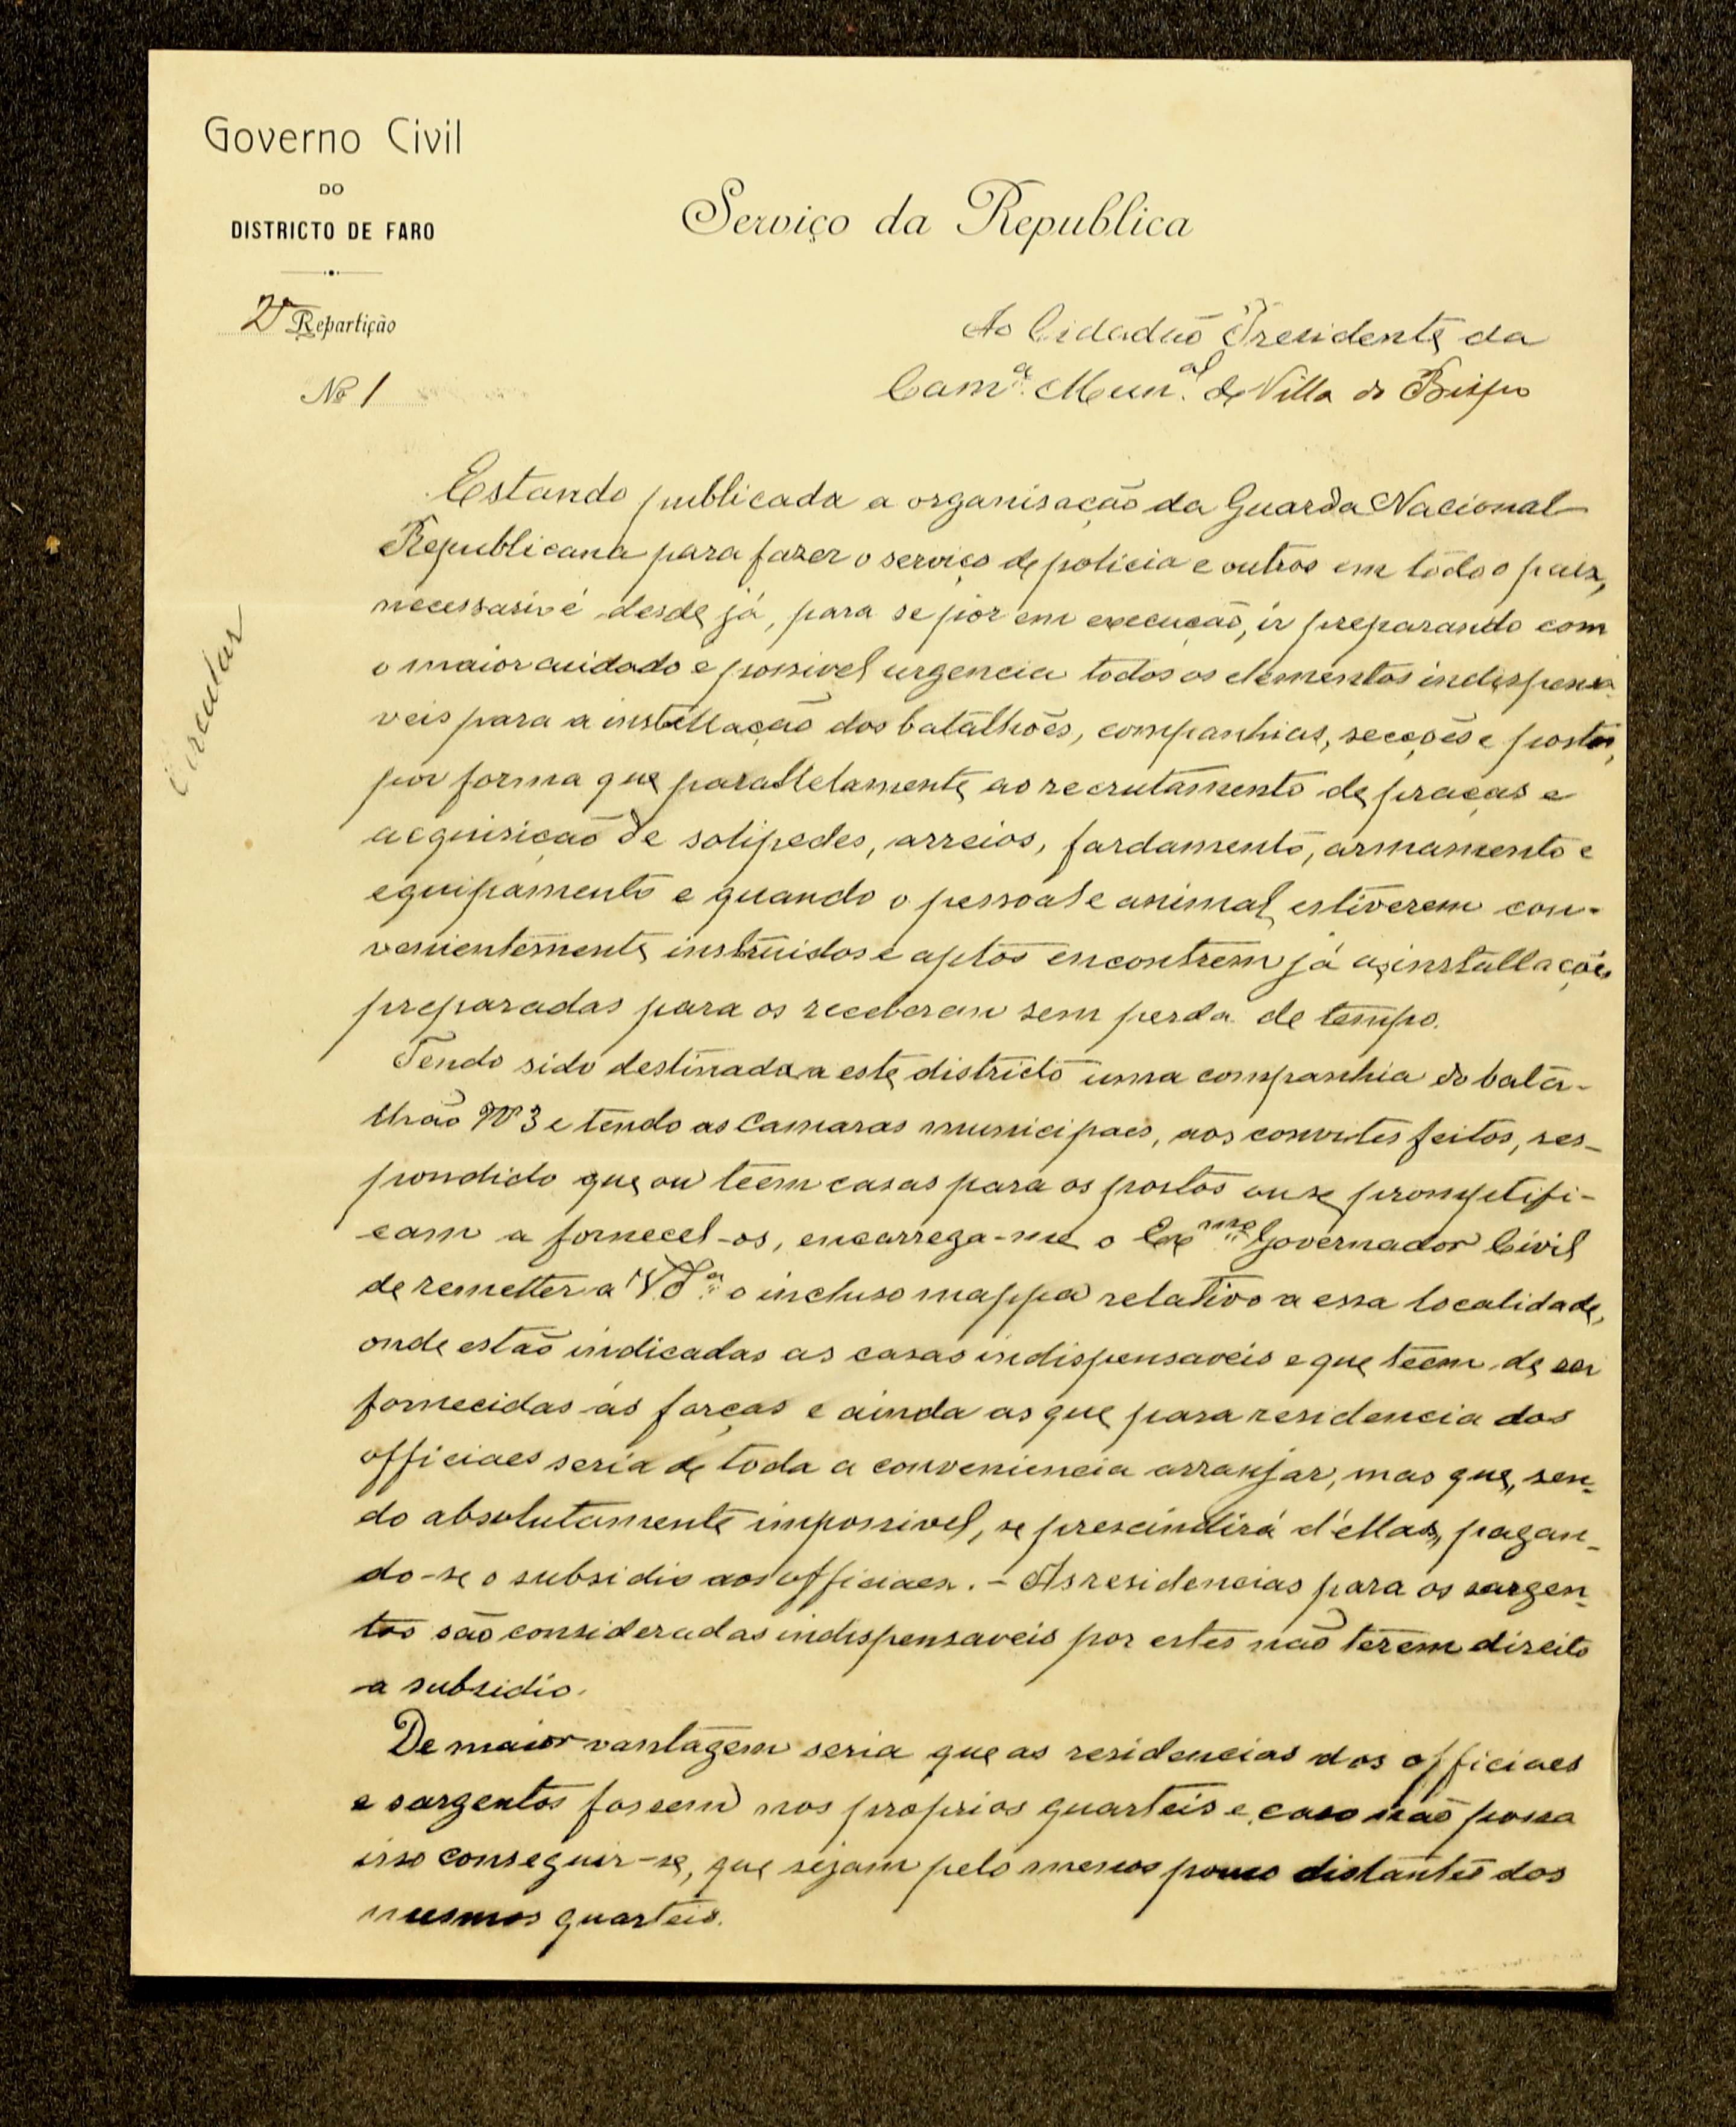 Governo Civil
DO
DISTRICTO DE FARO
2ª Repartição
Nº 1
Serviço da Republica
Ao Cidadão Presidente da
Camª. Munal. de Villa do Bispo
Circular
Estando publicada a organisação da Guarda Nacional
Republicana para fazer o serviço de policia e outros em todo o paiz,
necessario é desde já, para se pôr em execução, ir preparando com
o maior cuidado e possivel urgencia todos os elementos indispensa-
veis para a installação dos batalhões, companhias, secções e postos,
por forma que parallelamente ao recrutamento de praças e
acquisição de solipedes, arreios, fardamento, armamento e
equipamento e quando o pessoal e animal estiverem con-
venientemente instruidos e aptos encontrem já as installações
preparadas para os receberem sem perda de tempo.
Tendo sido destinada a este districto uma companhia do bata-
lhão Nº 3 e tendo as Camaras municipaes, aos convites feitos, res-
pondido que ou teem casas para os postos ou se promptifi-
cam a fornecel-os, encarrega-me o Exmo Governador Civil
de remetter a V. Sª. o incluso mappa relativo a essa localidade,
onde estão indicadas as casas indispensaveis e que teem de ser
fornecidas ás forças e ainda as que para residencia dos
officiaes seria de toda a conveniencia arranjar, mas que, sen-
do absolutamente impossivel, se prescindirá d'ellas, pagan-
do-se o subsidio aos officiaes. - As residencias para os sargen-
tos são consideradas indispensaveis por estes não terem direito
a subsidio.
De maior vantagem seria que as residencias dos officiaes
e sargentos fossem nos proprios quarteis e, caso não possa
isso conseguir-se, que sejam pelo menos pouco distantes dos
mesmos quarteis.